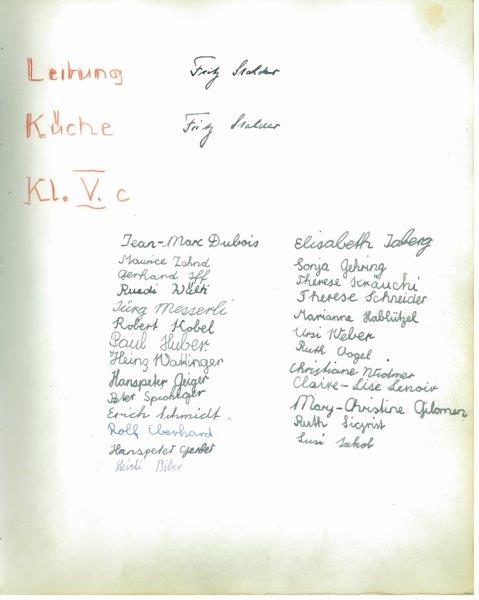 Leitung Fritz Stalder
Küche Fritz Stalder
Kl. V. c
Jean-Marc Dubois
Maurice Zahnd
Gerhard Iff
Ruedi Wälti
Jürg Messerli
Robert Kobel
Paul Huber
Heinz Wattinger
Hanspeter Geiger
Peter
Erich Schmidt.
Rolf Eberhard
Hanspeter Gerber
Heidi Biber
Elisabeth Isberg
Sonja Gehring
Therese Kräuchi
Therese Schneider
Marianne Hablützel
Ursi Weber
Ruth Vogel
Christiane Widmer
Claire-Lise Lenoir
Mary-Christine Gilomen
Ruth Sigrist
Susi Jakob